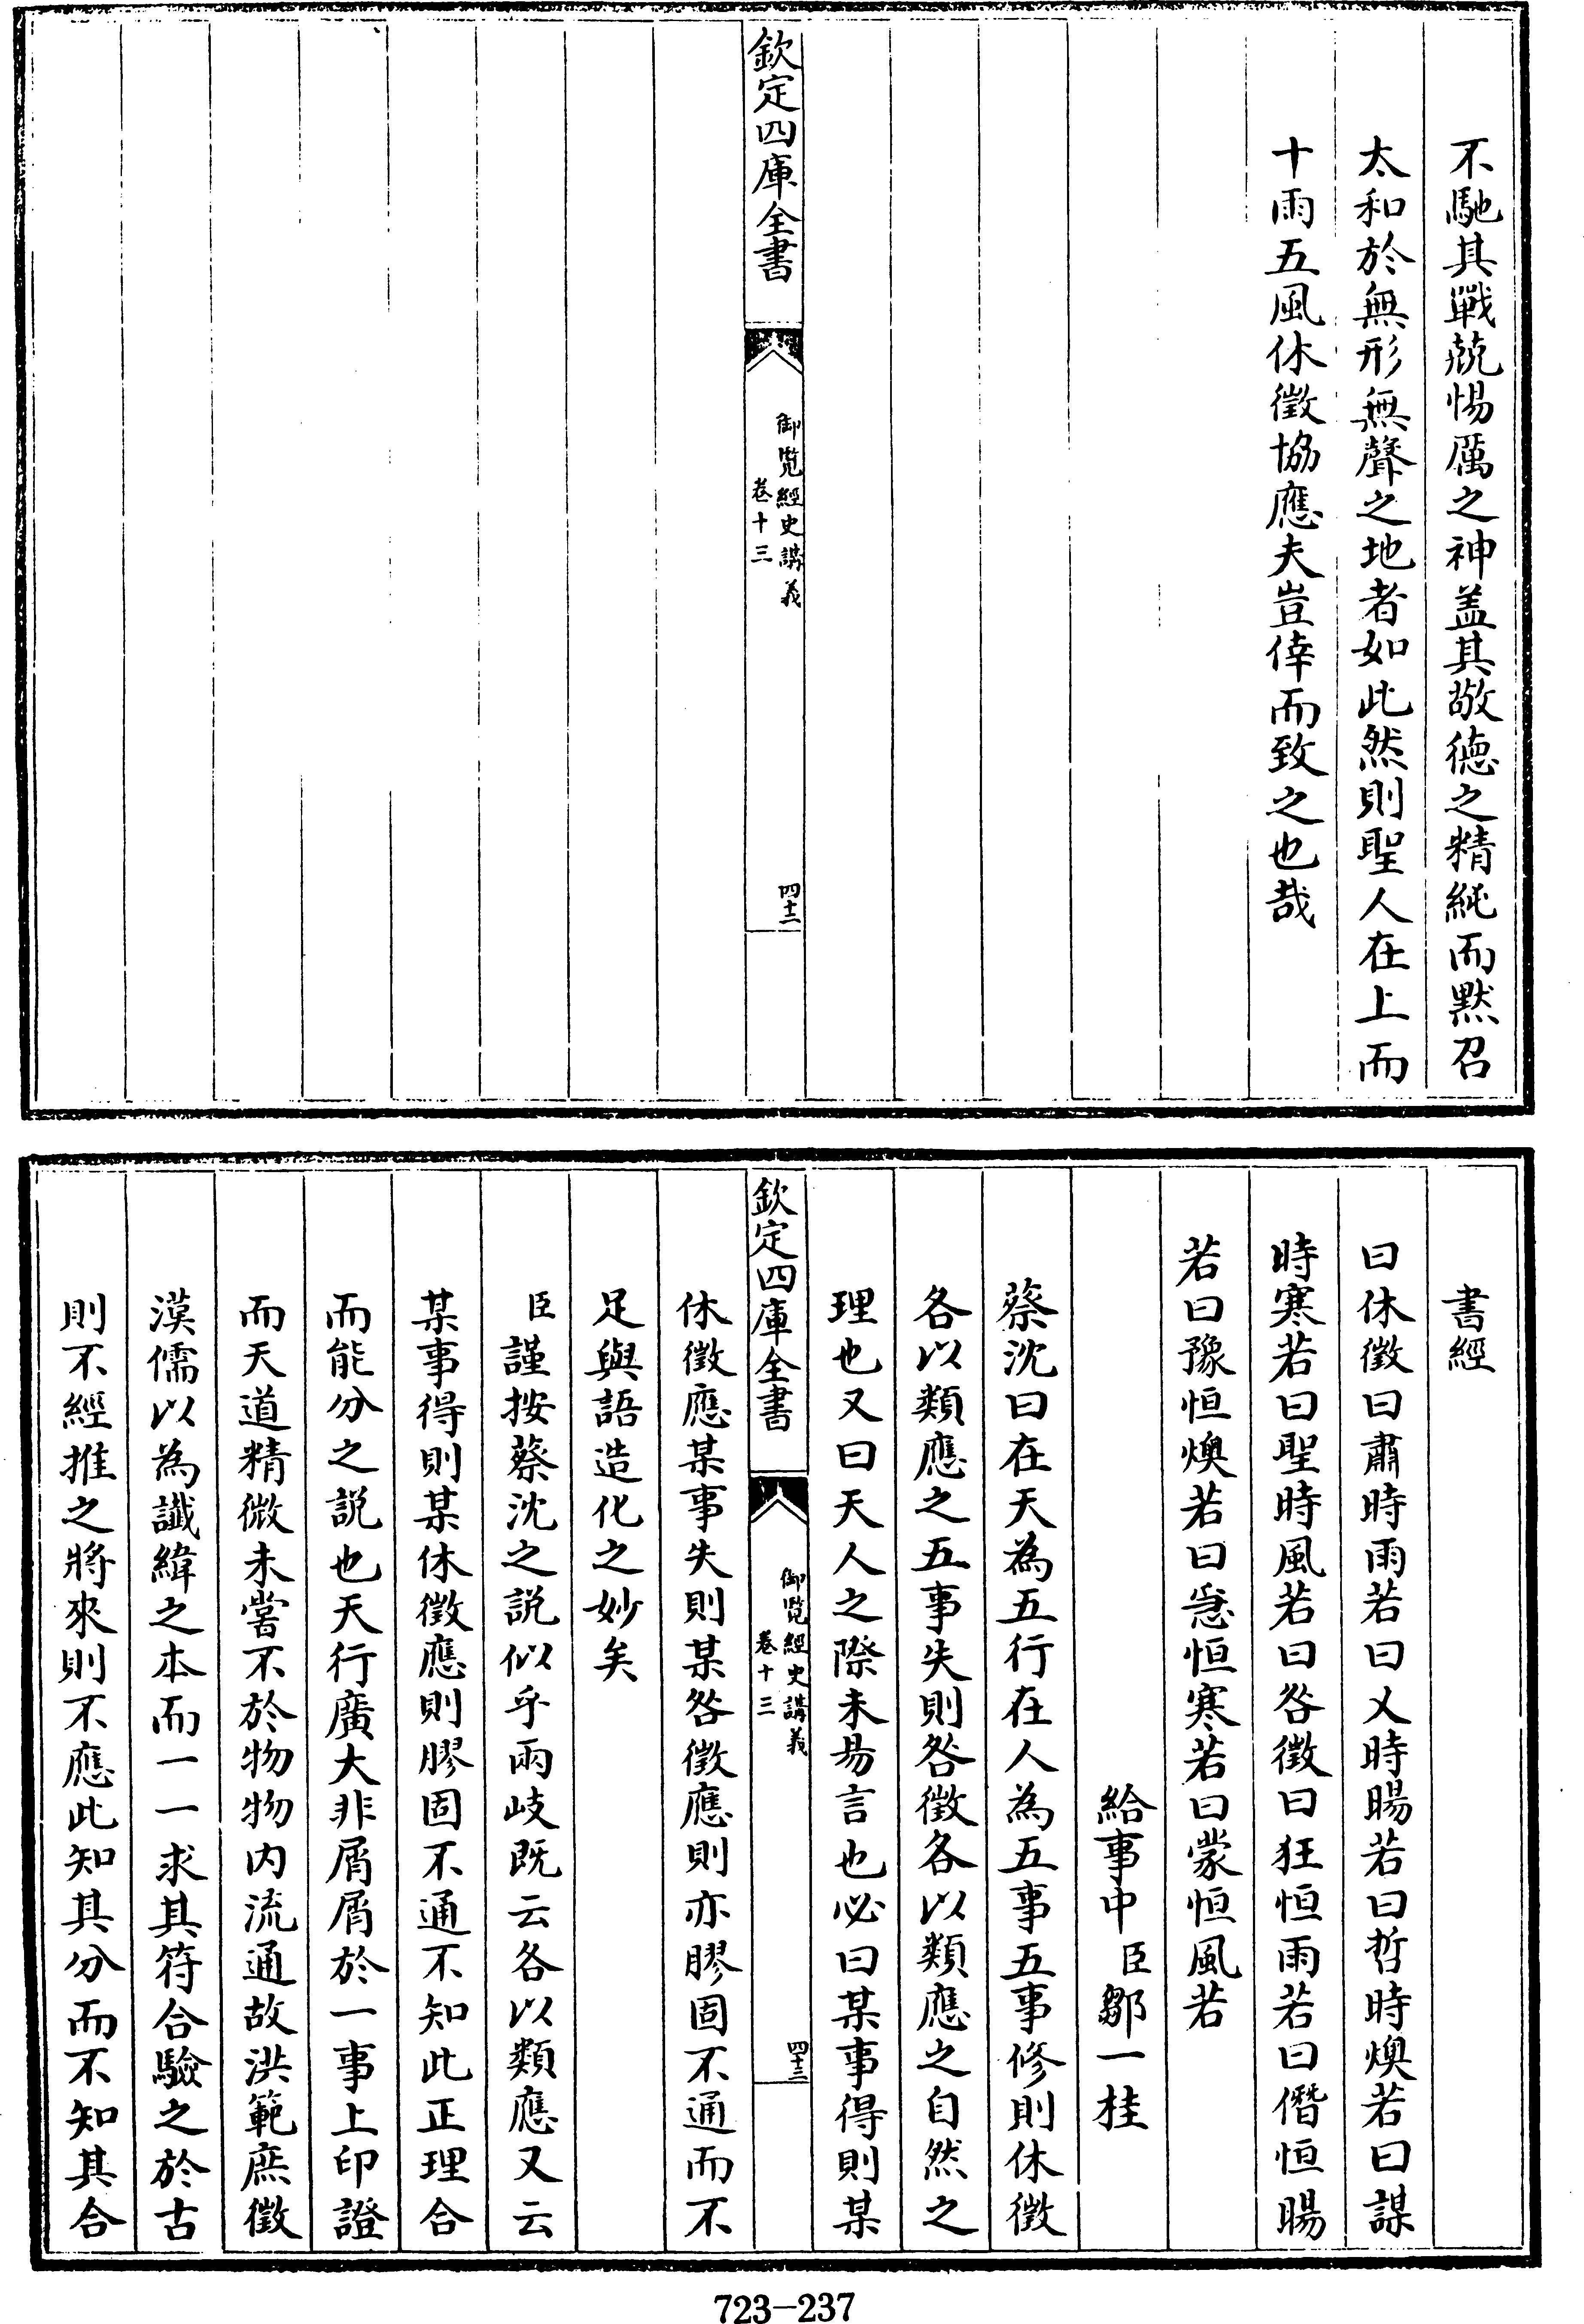 不馳其戰兢惕厲之神盖其敬德之精純而黙召
太和於無形無聲之地者如此然則聖人在上而
十雨五風休徵協應夫豈倖而致之也哉
欽定四庫全書
御覽經史講義
卷十三
四十二
書經
曰休徵曰肅時雨若曰乂時暘若曰哲時燠若曰謀
時寒若曰聖時風若曰咎徵曰狂恒雨若曰僭恒暘
若曰豫恒燠若曰急恒寒若曰蒙恒風若
給事中臣鄒一桂
蔡沈曰在天為五行在人為五事五事修則休徵
各以類應之五事失則咎徵各以類應之自然之
理也又曰天人之際未易言也必曰某事得則某
欽定四庫全書
御覽經史講義
卷十三
四十三
休徵應某事失則某咎徵應則亦膠固不通而不
足與語造化之妙矣
臣謹按蔡沈之説似乎兩岐既云各以類應又云
某事得則某休徵應則膠固不通不知此正理合
而能分之説也天行廣大非屑屑於一事上印證
而天道精微未嘗不於物物内流通故洪範庶徵
漢儒以為讖緯之本而一一求其符合驗之於古
則不經推之將來則不應此知其分而不知其合
723-237